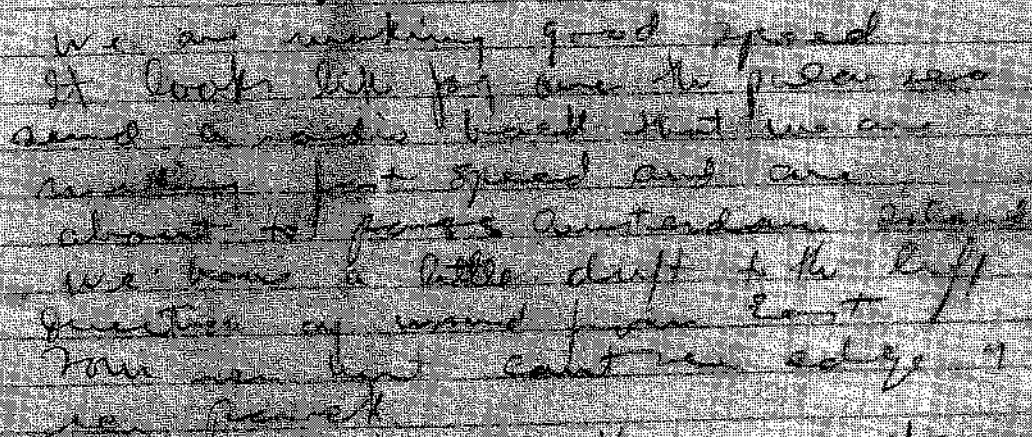 We are making good speed
It looks like fog over the
send a radio back that we are
making fast speed and are
about to pass Amsterdam Island
We have a little drift to the left
Direction of wind from East
You can just can't see edge of
ice pack